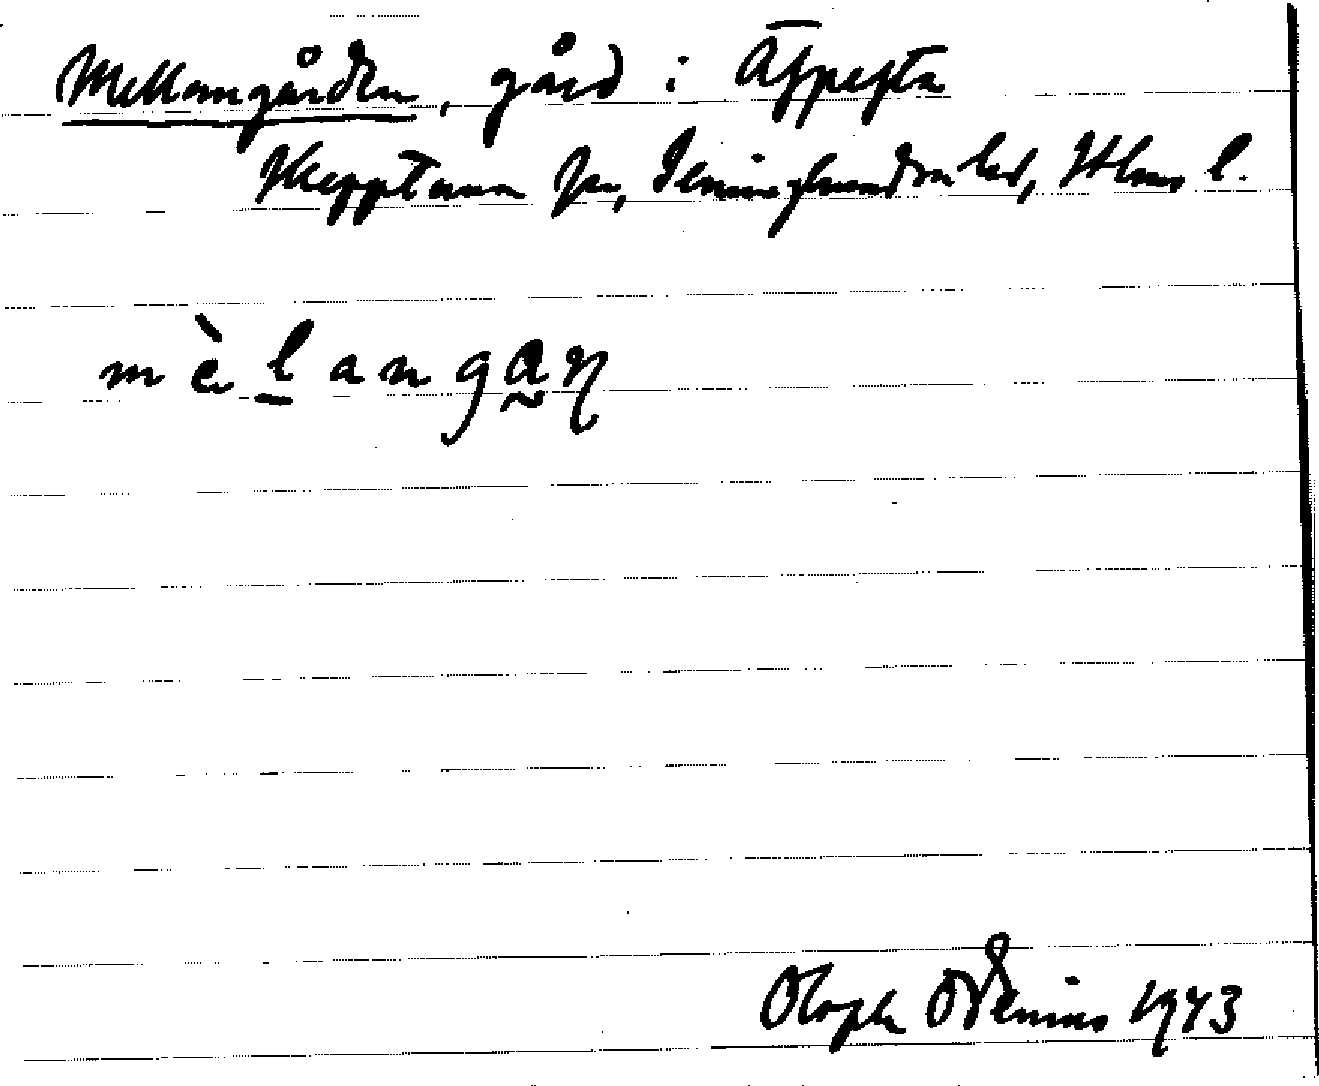 Mellangården, gård i Åspesta
Skepptuna sn, Seminghundra hd, Sthms l.
mèlangaɳ
Oloph Odenius 1943